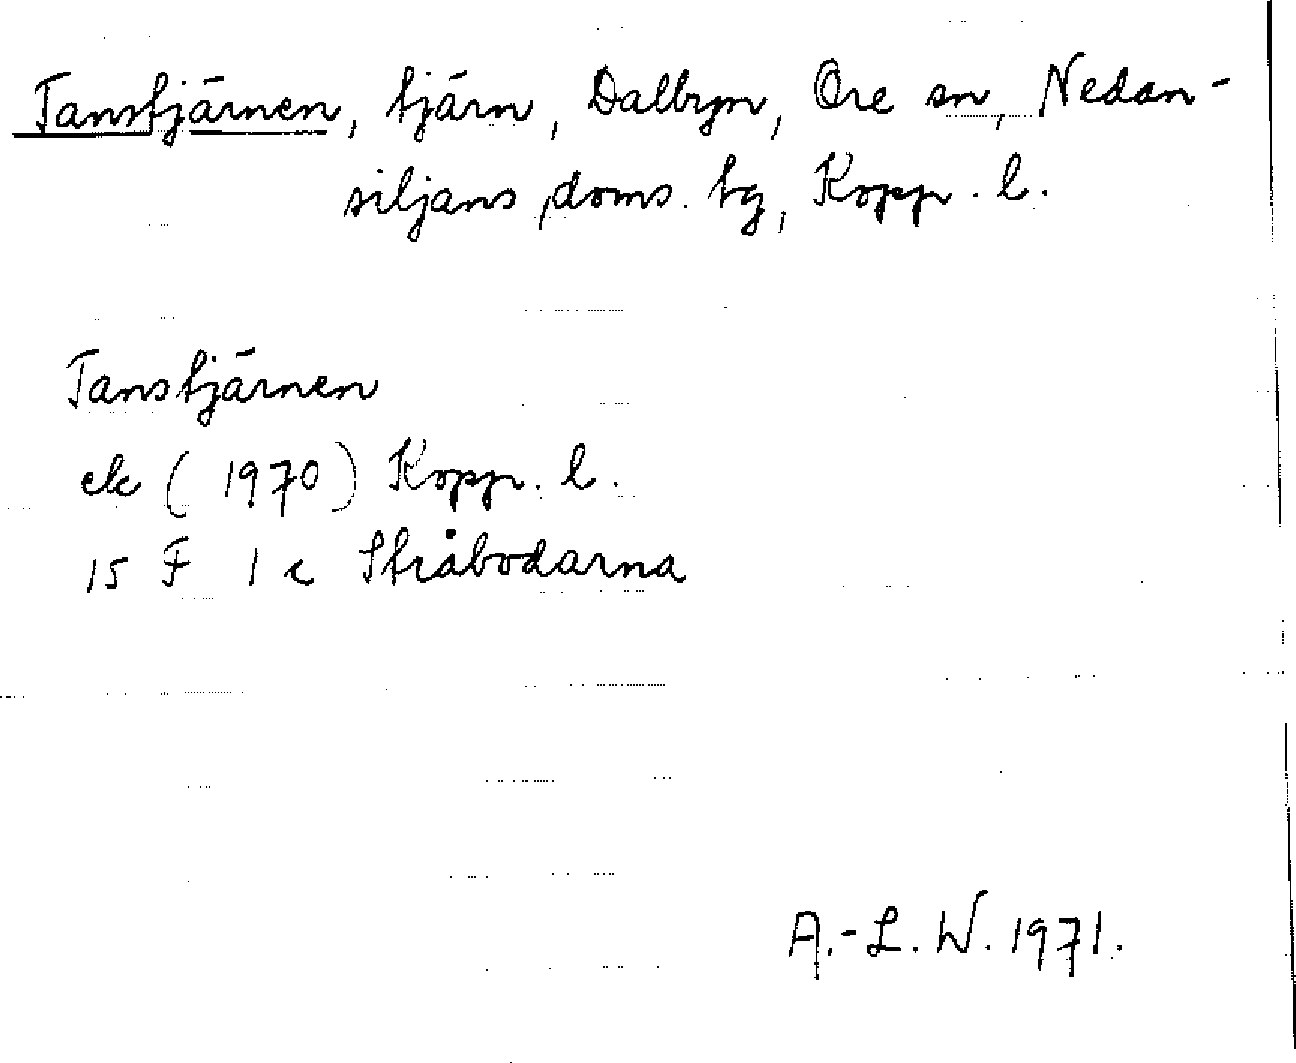 Tanstjärnen, tjärn, Dalbyn, Ore sn, Nedan-
siljans doms. tg, Kopp. l.
Tanstjärnen
ek (1970) Kopp. l.
15 F 1 c Stråbodarna
A.-L. W. 1971.